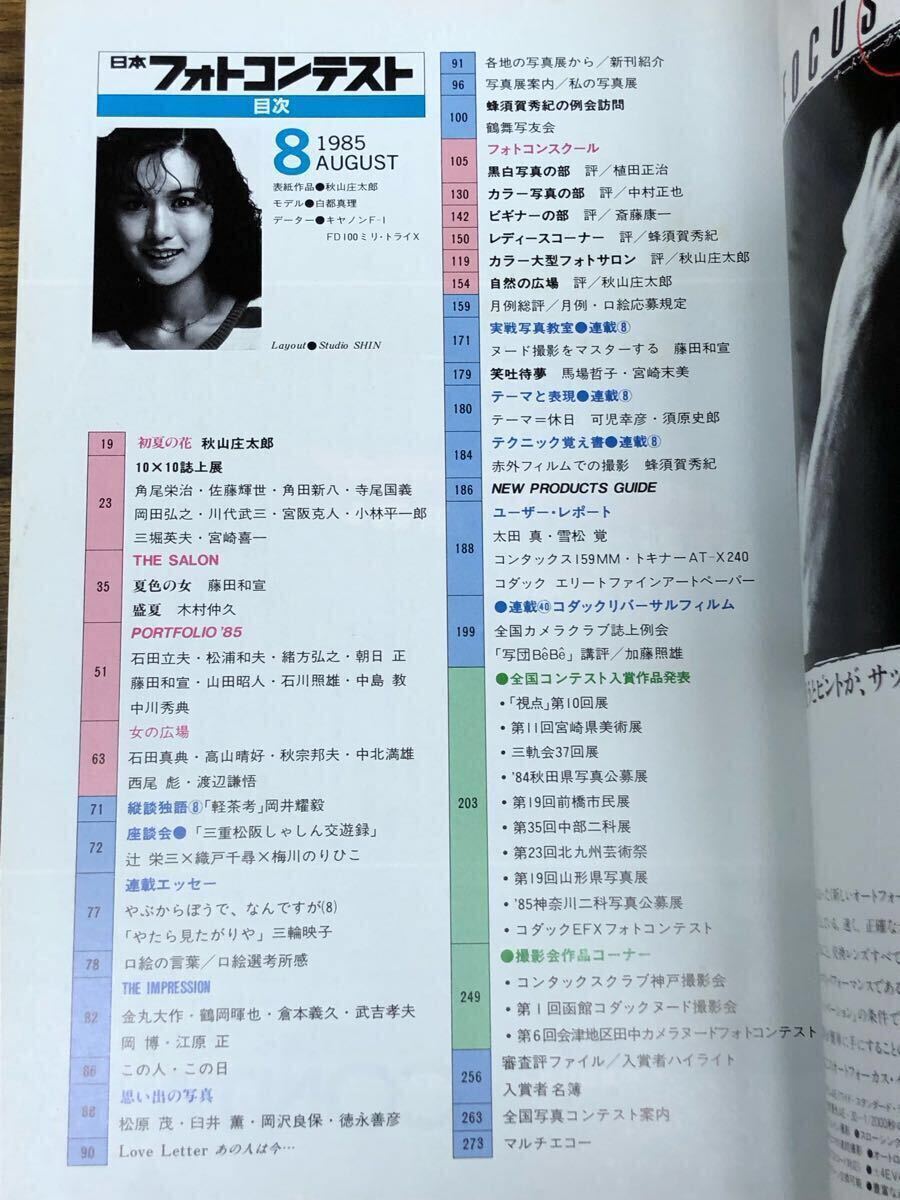 日本 フォトコンテスト
目次
8 1985 AUGUST
表紙作品●秋山庄太郎
モデル●白都真理
データー●キヤノンF-1
FD100ミリ・トライX
Layout● Studio SHIN
19 初夏の花 秋山庄太郎
23 10×10誌上展
角尾栄治・佐藤輝世・角田新八・寺尾国義
岡田弘之・川代武三・宮阪克人・小林平一郎
三堀英夫・宮崎喜一
35 THE SALON
夏色の女 藤田和宣
盛夏 木村仲久
51 PORTFOLIO '85
石田立夫・松浦和夫・緒方弘之・朝日 正
藤田和宣・山田昭人・石川照雄・中島 教
中川秀典
63 女の広場
石田真典・高山晴好・秋宗邦夫・中北満雄
西尾 彪・渡辺謙悟
71 縦談独語⑧「軽茶考」岡井耀毅
72 座談会●「三重松阪しゃしん交遊録」
辻 栄三×織戸千尋×梅川のりひこ
77 連載エッセー
やぶからぼうで、なんですが(8)
「やたら見たがりや」三輪映子
78 口絵の言葉／口絵選考所感
82 THE IMPRESSION
金丸大作・鶴岡暉也・倉本義久・武吉孝夫
岡 博・江原 正
86 この人・この日
88 思い出の写真
松原 茂・臼井 薫・岡沢良保・徳永善彦
90 Love Letter あの人は今…
91 各地の写真展から／新刊紹介
96 写真展案内／私の写真展
100 蜂須賀秀紀の例会訪問
鶴舞写友会
105 フォトコンスクール
黒白写真の部 評／植田正治
130 カラー写真の部 評／中村正也
142 ビギナーの部 評／斎藤康一
150 レディースコーナー 評／蜂須賀秀紀
119 カラー大型フォトサロン 評／秋山庄太郎
154 自然の広場 評／秋山庄太郎
159 月例総評／月例・口絵応募規定
171 実戦写真教室●連載⑧
ヌード撮影をマスターする 藤田和宣
179 笑吐待夢 馬場哲子・宮崎末美
180 テーマと表現●連載⑧
テーマ＝休日 可児幸彦・須原史郎
184 テクニック覚え書●連載⑧
赤外フィルムでの撮影 蜂須賀秀紀
186 NEW PRODUCTS GUIDE
188 ユーザー・レポート
太田 真・雪松 覚
コンタックス159MM・トキナーAT-X240
コダック エリートファインアートペーパー
199 ●連載㊵コダックリバーサルフィルム
全国カメラクラブ誌上例会
「写団BêBê」講評／加藤照雄
203 ●全国コンテスト入賞作品発表
・「視点」第10回展
・第11回宮崎県美術展
・三軌会37回展
・'84秋田県写真公募展
・第19回前橋市民展
・第35回中部二科展
・第23回北九州芸術祭
・第19回山形県写真展
・'85神奈川二科写真公募展
・コダックEFXフォトコンテスト
249 ●撮影会作品コーナー
・コンタックスクラブ神戸撮影会
・第1回函館コダックヌード撮影会
・第6回会津地区田中カメラヌードフォトコンテスト
256 審査評ファイル／入賞者ハイライト
入賞者名簿
263 全国写真コンテスト案内
273 マルチエコー
FOCUS
とピントが、サッ